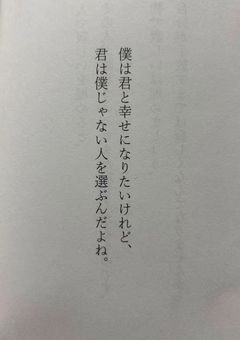 僕は君と幸せになりたいけれど、
君は僕じゃない人を選ぶんだよね。